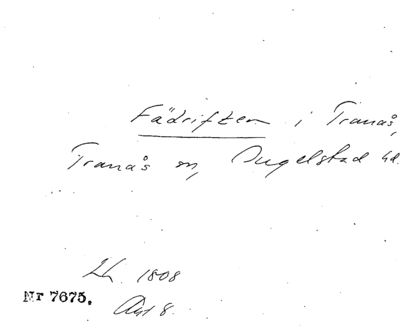 Fädriften i Tranås,
Tranås sn, Ingelstad hd.
Lh. 1808
Nr 7675.
Akt 8.